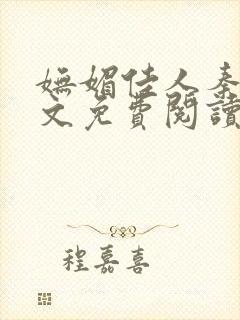 嫵媚佳人秦
文免費閱讀
程嘉喜